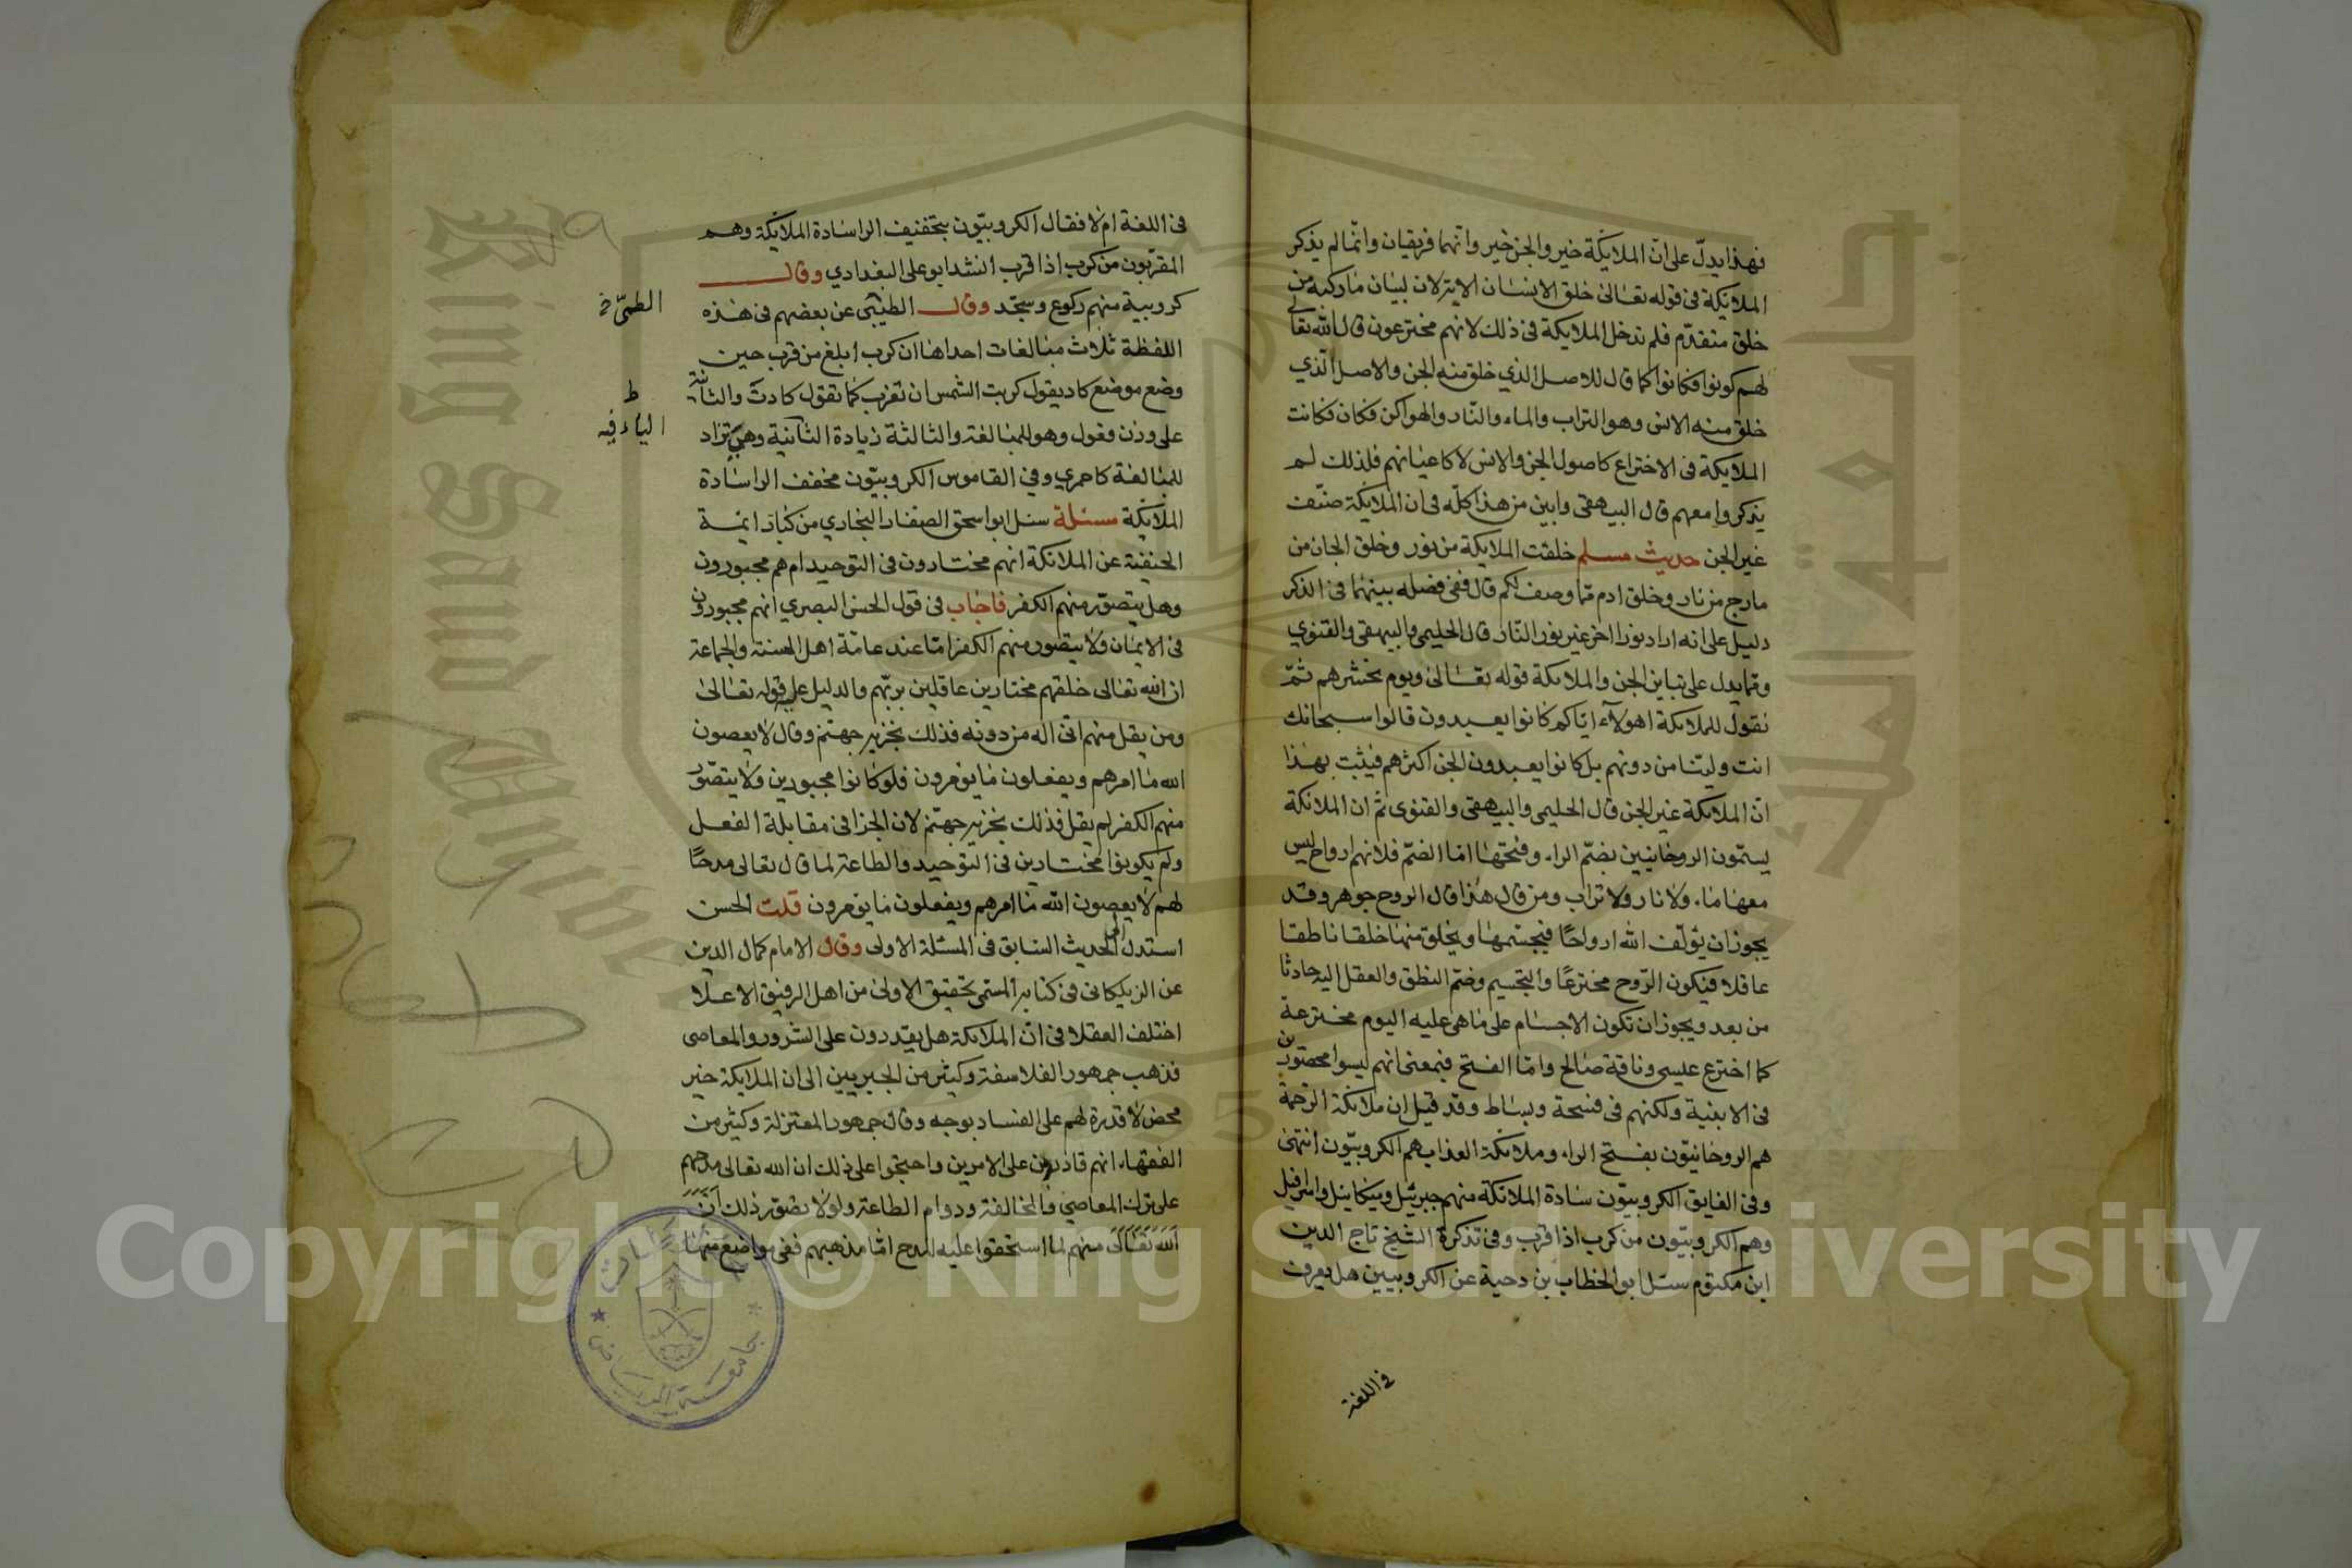 فهذا يدل على ان الملايكة خير والجن خير وانهما فريقان وانما لم يذكر
الملائكة فى قوله تعالى خلق الانسان الايتزلان لبيان ما ركبه من
خلق متقدم فلم تدخل الملايكة فى ذلك لانهم مخترعون قال الله تعالى
لهم كونوا فكانوا كما قال للاصل الذي خلق منه الجن والاصل الذي
خلق منه الانس وهو التراب والماء والنار والهوا كن فكان فكانت
الملايكة فى الاختراع كاصول الجن والانس لا كاعيانهم فلذلك لم
يذكروا معهم قال البيهقى وابين من هذا كله فى ان الملايكة صنف
غير الجن حديث مسلم خلقت الملايكة من نور وخلق الجان من
مارج من نار وخلق ادم مما وصف لكم قال ففى فضله بينهما فى الذكر
دليل على انه اراد نورا اخر غير نور النار قال الحليمى والبيهقى والقنوي
ومما يدل على تباين الجن والملايكة قوله تعالى ويوم نحشرهم ثم
نقول للملايكة اهولاء اياكم كانوا يعبدون قالوا سبحانك
انت ولينا من دونهم بل كانوا يعبدون الجن اكثرهم فيثبت بهذا
ان الملايكة غير الجن قال الحليمى والبيهقى والقنوى ثم ان الملائكة
يسمون الروحانيين بضم الراء وفتحها اما الضم فلانهم ارواح ليس
معها ماء ولا نار ولا تراب ومن قال هذا قال الروح جوهر وقد
يجوز ان يؤلف الله ارواحا فيجسمها ويخلق منها خلقا ناطقا
عاقلا فيكون الروح مخترعا والتجسيم وضم النطق والعقل اليه حادثا
من بعد ويجوز ان تكون الاجسام على ما هى عليه اليوم مخترعة
كما اخترع عيسى وناقة صالح واما الفتح فبمعنى انهم ليسوا محصورين
فى الابنية ولكنهم فى فسحة وبساط وقد قيل ان ملائكة الرحمة
هم الروحانيون بفتح الراء وملائكة العذاب هم الكروبيون انتهى
وفى الفايق الكروبيون سادة الملائكة منهم جبرئيل وميكائيل واسرافيل
وهم الكروبيون من كرب اذا قرب وفى تذكرة الشيخ تاج الدين
ابن مكتوم سئل ابو الخطاب بن دحية عن الكروبيين هل يعرف
فى اللغة
فى اللغة ام لا فقال الكروبيون بتخفيف الراسادة الملايكة وهم
المقربون من كرب اذا قرب انشد ابو على البغدادي وقال
كروبية منهم ركوع وسجد وقال الطيبى عن بعضهم فى هذه
اللفظة ثلاث مبالغات احداها ان كرب ابلغ من قرب حين
وضع موضع كاد يقول كربت الشمس ان تغرب كما تقول كادت والثانية
على وزن فعول وهو للمبالغة والثالثة زيادة الثانية وهى تزاد
الياء فيه
للمبالغة كاحمري وفي القاموس الكروبيون مخفف الراسادة
الملايكة مسئلة سئل ابو اسحق الصفار البخاري من كبار ايمة
الحنفية عن الملائكة انهم مختارون فى التوحيد ام هم مجبورون
وهل يتصور منهم الكفر فاجاب فى قول الحسن البصري انهم مجبورون
فى الايمان ولا يتصور منهم الكفر اما عند عامة اهل السنة والجماعة
ان الله تعالى خلقهم مختارين عاقلين بربهم والدليل على قوله تعالى
ومن يقل منهم انى اله من دونه فذلك نجزيه جهنم وقال لا يعصون
الله ما امرهم ويفعلون ما يؤمرون فلو كانوا مجبورين ولا يتصور
منهم الكفر لم يقل فذلك نجزيه جهنم لان الجزا فى مقابلة الفعل
ولم يكونوا مختارين فى التوحيد والطاعة لما قال تعالى مدحا
لهم لا يعصون الله ما امرهم ويفعلون ما يؤمرون قلت الحسن
استدل الحديث السابق فى المسئلة الاولى وقال الامام كمال الدين
عن الزيلكانى فى كتابه المسمى تحقيق الاولى من اهل الرفيق الاعلا
اختلف العقلا فى ان الملايكة هل يقدرون على الشرور والمعاصى
فذهب جمهور الفلاسفة وكثير من الجبريين الى ان الملايكة خير
محض لا قدرة لهم على الفساد بوجه وقال جمهور المعتزلة وكثير من
الفقهاء انهم قادرون على الامرين واحتجوا على ذلك ان الله تعالى مدحهم
على ترك المعاصي والمخالفة ودوام الطاعة ولولا تصور ذلك ان
الله تعالى منهم لما استحقوا عليه المدح اما مذهبهم ففى مواضع منها
جامعة الرياض
Copyright © King Saud University
جامعة الملك سعود
King Saud University
1957